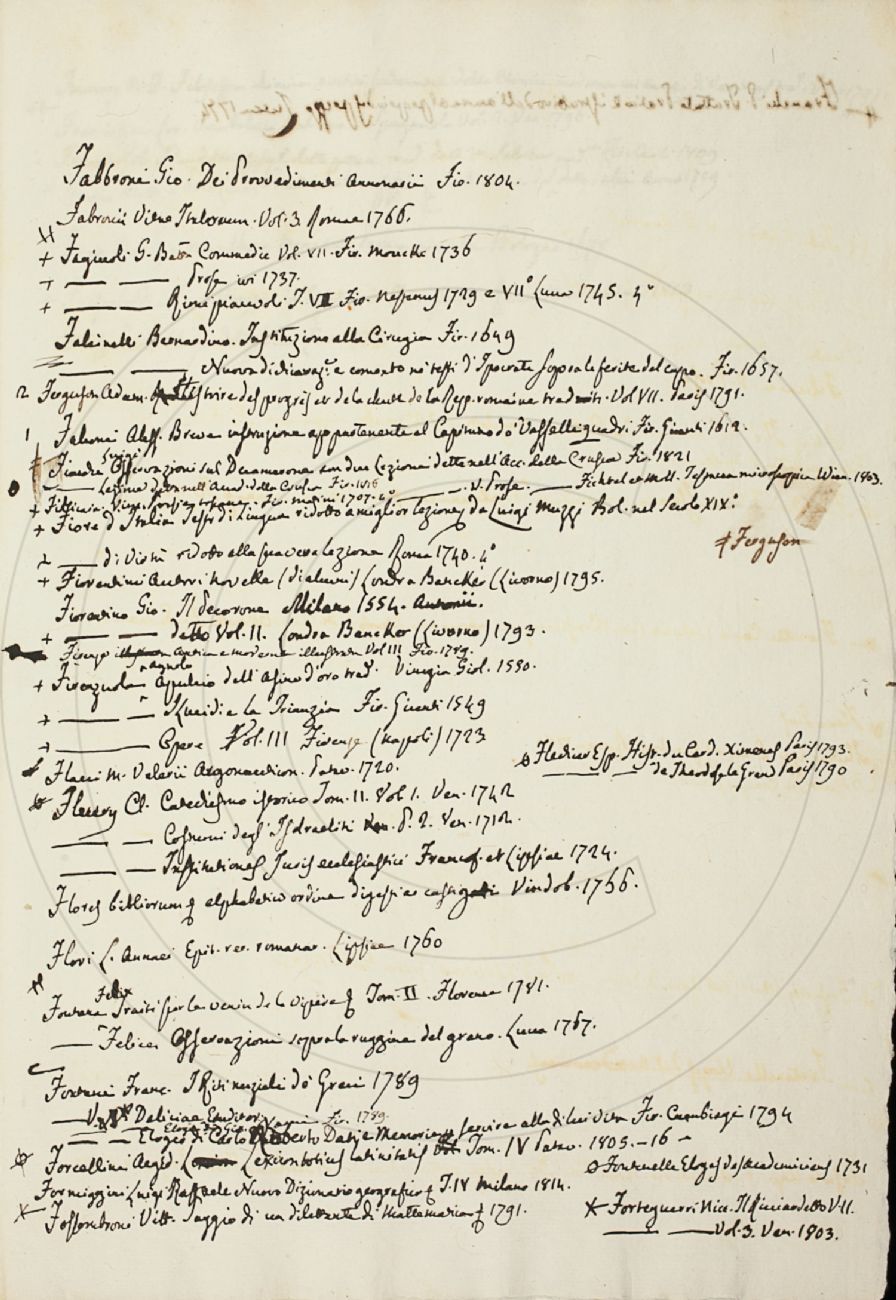 Fabbroni Gio. Dei Provvedimenti annonarii Fir. 1804.
Fabronii Vitae Italorum. Vol. 3. Romae 1766.
+ Fagiuoli G. Batta Commedie Vol. VII. Fir. Moucke 1736
+ —— —— Prose ivi 1737.
+ —— —— Rime piacevoli T. VII Fir. Nestenus 1729 e VII° Lucca 1745. 4°
Falcinelli Bernardino. Instituzione alla Cirugia Fir. 1649
—— —— Nuova e comento ne testi d'Ipocrate sopra le ferite del capo. Fir. 1657.
2 Ferguson Adam. Histoire des progrès et de la chute de la Rep. romaine trad. Vol VII. Paris 1791.
1 Falconi Aless. Breve instruzione appartenente al Capitano de' Vasselli quadri Fir. Giunti 1612.
Osservazioni sul Decamerone con due Lezioni dette nell'Acc. della Crusca Fir. 1821
—— Lezione detta nell'Accad. della Crusca Fir. 1816 —— v. Prose. —— Fichtel et Moll. Testacea microscopica Wien. 1803.
+ Filicaia Vinc. Poesie toscane. Fir. Matini 1707. 4°
+ Fiore d'Italia Testo di Lingua ridotto a miglior lezione da Luigi Muzzi Bol. nel Secolo XIX°.
‡ Ferguson
2 —— di Virtù ridotto alla sua vera lezione Roma 1740. 4°
+ Fiorentini Autori novelle (di alcuni) Londra Bancker (Livorno) 1795.
Fiorentino Gio. Il Pecorone Milano 1554. Antonii.
+ —— —— detto Vol. II. Londra Bancker (Livorno) 1793.
Firenze antica e moderna illustrata Vol III Fir. 1789.
+ Firenzuola Agnolo Apuleio dell'Asino d'oro trad. Vinegia Giol. 1550.
+ —— —— I Lucidi e la Trinuzia Fir. Giunti 1549
+ —— Opere Vol. III Firenze (Napoli) 1723
Flacci M. Valerii Argonauticon. Patav. 1720.
Flechier Esp. Hist. du Card. Ximenes Paris 1793.
—— —— de Theodose le Grand Paris 1790
Fleury Cl. Catechismo istorico Tom. II. Vol 1. Ven. 1742
—— —— Costumi degl'Isdraeliti P. 2. Ven. 1712.
—— —— Institutiones Juris ecclesiastici Francof. et Lipsiae 1724.
Flores bibliorum alphabetico ordine digesti ac castigati Vindob. 1756.
Flori L. Annaei Epit. rer. romanar. Lipsiae 1760
Fontana Felix Traité sur le venin de la vipère Tom. II. Florence 1781.
—— Felice Osservazioni sopra la ruggine del grano. Lucca 1767.
Fontani Franc. I Riti nuziali de' Greci 1789
—— V. Deliciae Eruditor.
—— —— Elogio di Carlo Roberto Dati Fir. 1789.
Memorie servire alla di lui vita Fir. Cambiagi 1794
Forcellini Aegid. Lexicon totius latinitatis Tom. IV Patav. 1805. – 16 –
Fontenelle Eloges des Academiciens 1731
Formiggini Luigi Raffaele Nuovo Dizionario geografico T. IV Milano 1814.
Fossombroni Vitt. Saggio di un dilettante di matematica 1791.
Forteguerri Nicc. Il Ricciardetto V. II.
—— —— Vol. 3. Ven. 1803.